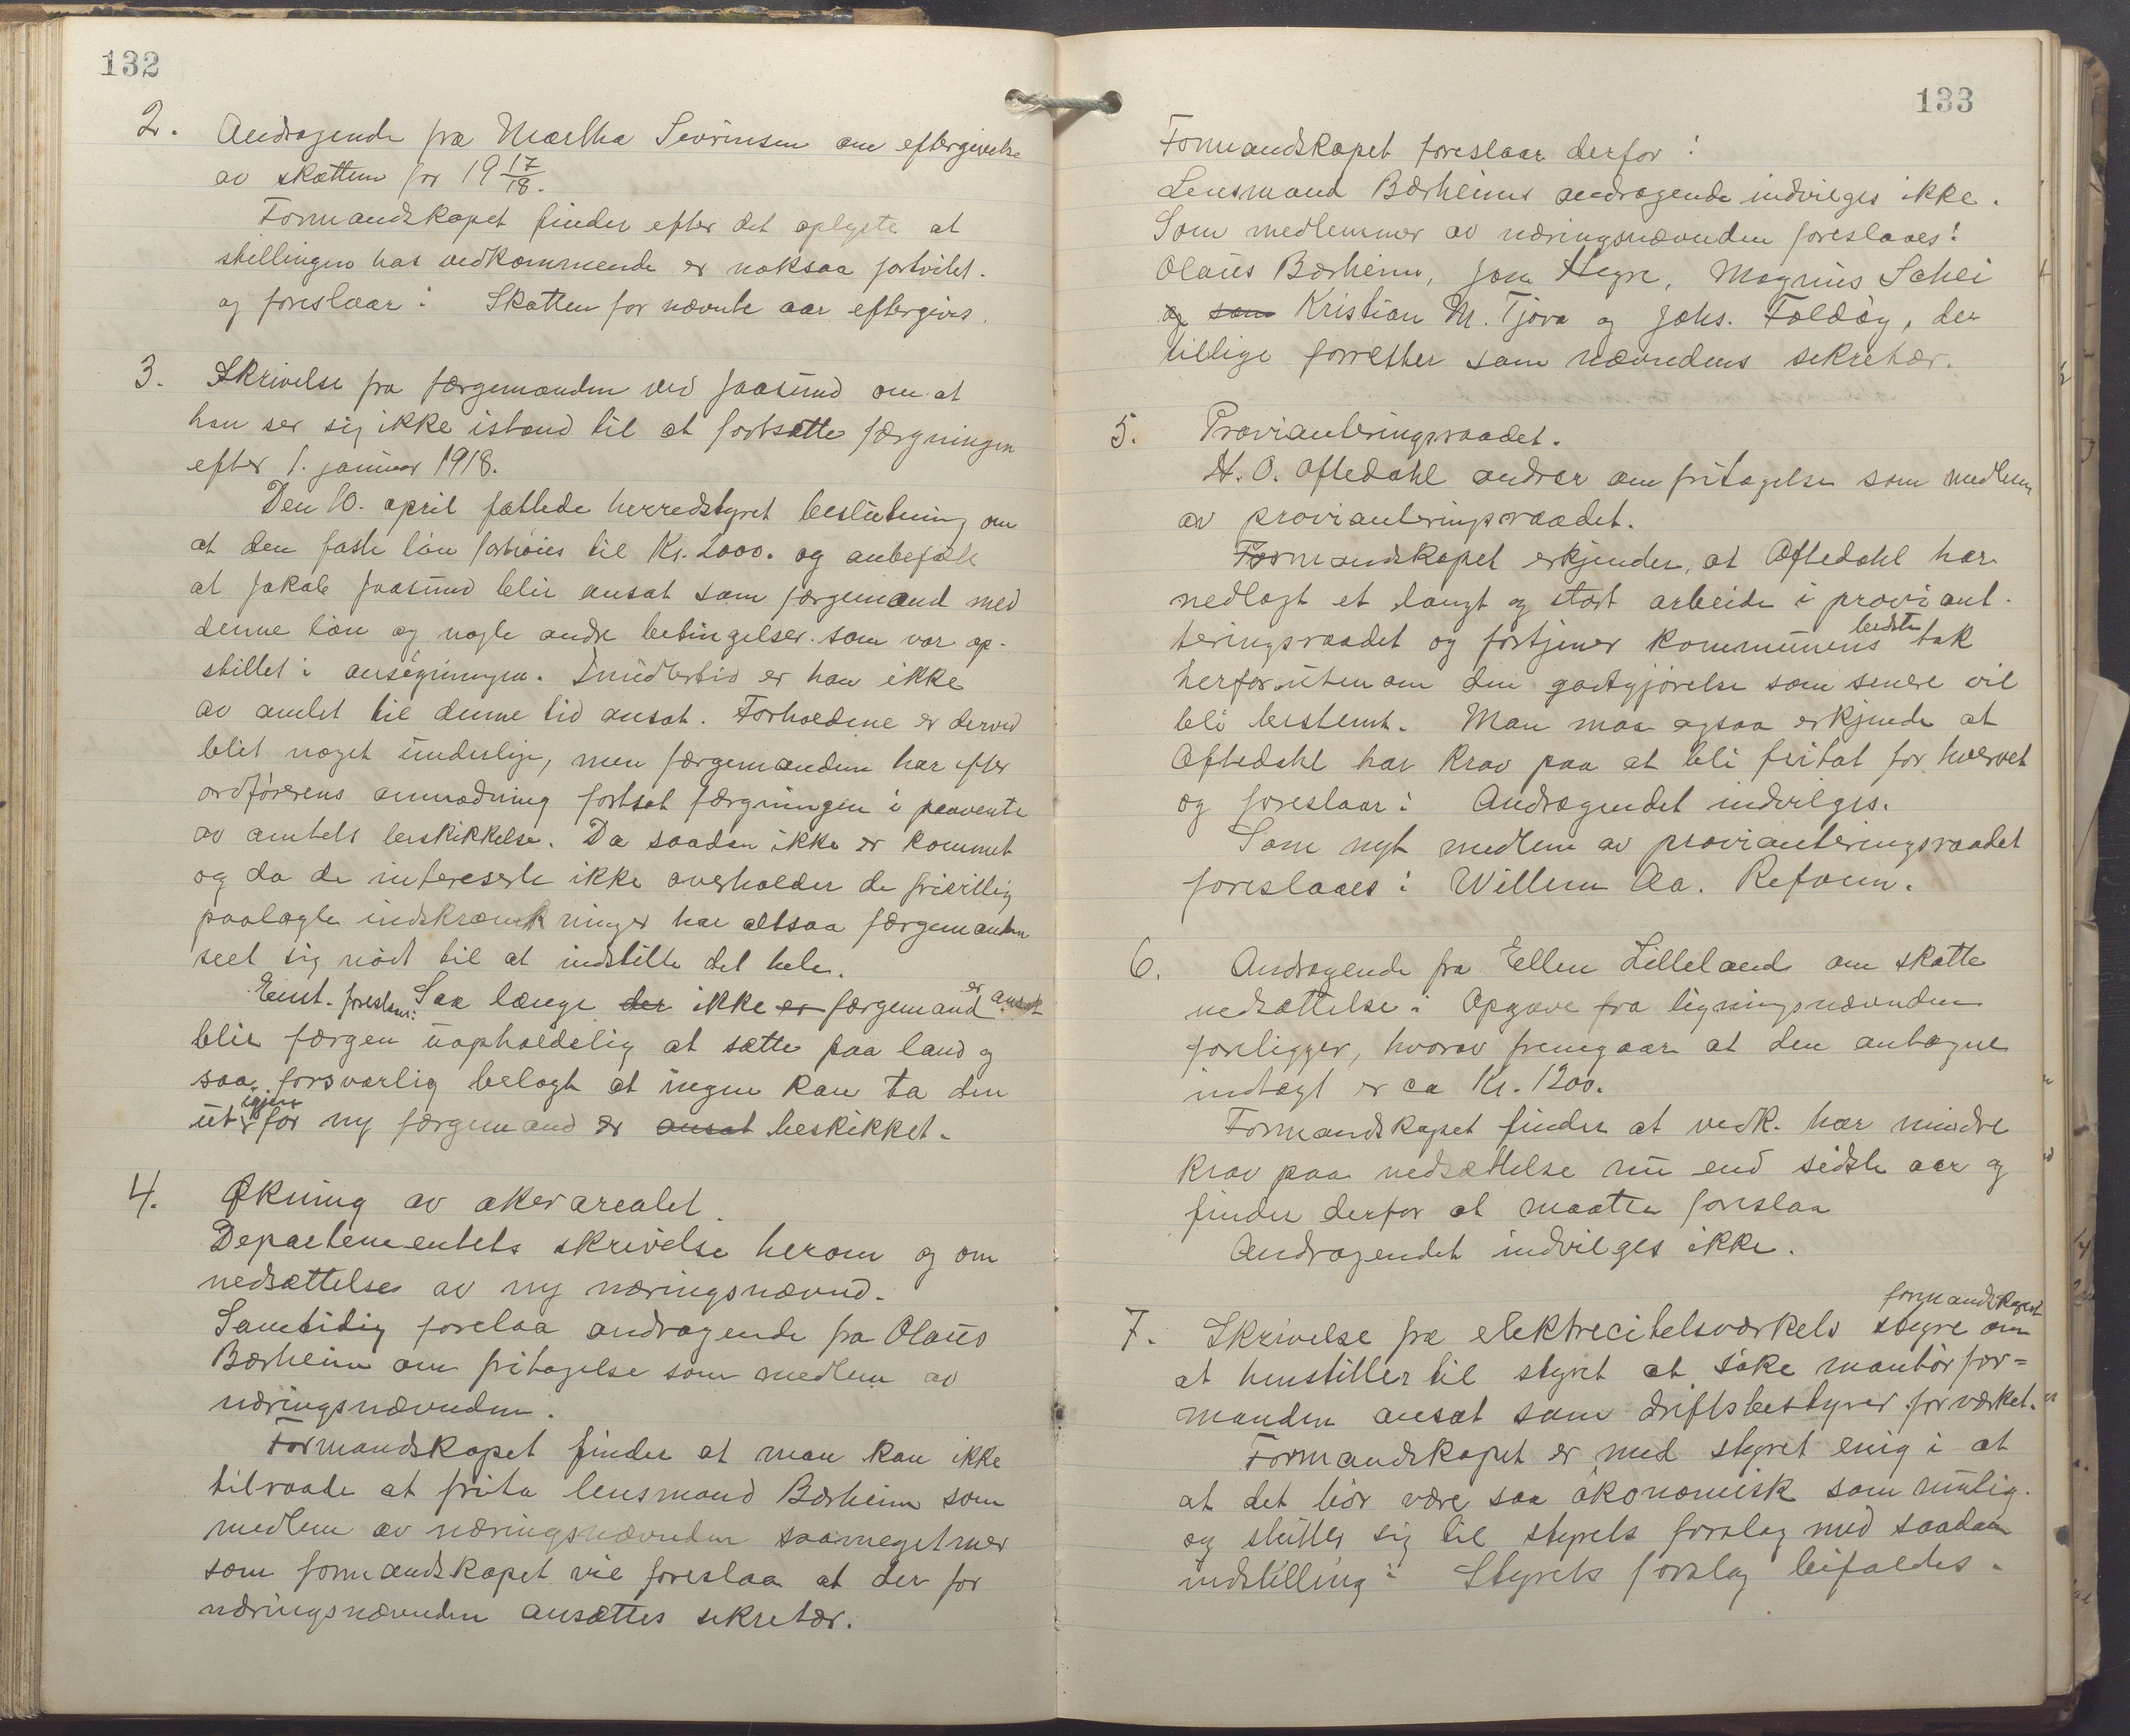 132
2. Andragende fra Martha Sevrinsen om eftergivelse
av skatten for 19 17/18.
Formandskapet finder efter det oplyste at
stillingen hos vedkommende er noksaa fortvilet.
og foreslaar: Skatten for nævnte aar eftergives.
3. Skrivelse fra færgemanden ved Jaasund om at
han ser sig ikke istand til at fortsætte færgningen
efter 1. januar 1918.
Den 10. april fattede herredstyret beslutning om
at den faste løn forhøies til Kr. 2000. og anbefalte
at Jakob Jaasund blir ansat som færgemand med
denne løn og nogle andre betingelser som var op-
stillet i ansøgningen. Imidlertid er han ikke
av amtet til denne tid ansat. Forholdene er derved
blit noget underlige, men færgemanden har efter
ordførerens anmodning fortsat færgningen i paavente
av amtets beskikkelse. Da saadan ikke er kommet
og da de interesserte ikke overholder de frivillig
paalagte indskrænkninger har altsaa færgemanden
seet sig nødt til at indstille det hele.
Enst. foreslaar: Saa længe der ikke er færgemand er ansat
blir færgen uopholdelig at sætte paa land og
saa forsvarlig belagt at ingen kan ta den
ut igjen før ny færgemand er ansat beskikket.
4. Økning av akerarealet.
Departementets skrivelse herom og om
nedsættelse av ny næringsnævnd.
Samtidig forelaa andragende fra Olaus
Bærheim om fritagelse som medlem av
næringsnævnden.
Formandskapet finder at man kan ikke
tilraade at frita lensmand Bærheim som
medlem av næringsnævnden saameget mer
som formandskapet vil foreslaa at der for
næringsnævnden ansættes sekretær.
133
Formandskapet foreslaar derfor:
Lensmand Bærheims andragende indvilges ikke.
Som medlemmer av næringsnævnden foreslaaes:
Olaus Bærheim, Jon Hegre, Magnus Sahei
og som Kristian M. Tjora og Johs. Foldøy, der
tillige forretter som nævndens sekretær.
5. Provianteringsraadet.
H. O. Oftedahl andrar om fritagelse som medlem
av provianteringsraadet.
Formandskapet erkjender, at Oftedahl har
nedlagt et langt og stort arbeide i proviant-
teringsraadet og fortjener kommunens bedste tak
herfor utenom den godtgjørelse som senere vil
bli bestemt. Man maa ogsaa erkjende at
Oftedahl har krav paa at bli fritat for hvervet
og foreslaar: Andragendet indvilges.
Som nyt medlem av provianteringsraadet
foreslaaes: Willem Aa. Refheim.
6. Andragende fra Ellen Lilleland om skatte
nedsættelse: Opgave fra ligningsnævnden
foreligger, hvorav fremgaar at den antagne
indtægt er ca Kr. 1200.
Formandskapet finder at vedk. har mindre
krav paa nedsættelse nu end sidste aar og
finder derfor at maatte foreslaa
Andragendet indvilges ikke.
7. Skrivelse fra elektricitetsværkets styre om
formandskapet
at henstiller til styret at søke montørfor-
manden ansat som driftsbestyrer for værket.
Formandskapet er med styret enig i at
at det bør være saa økonomisk som mulig.
og slutter sig til styrets forslag med saadan
indstilling: Styrets forslag bifaldes.